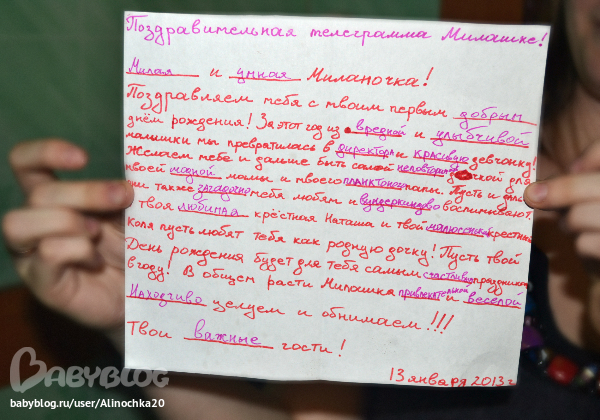 Поздравительная телеграмма Милашке!
Милая и умная Миланочка!
Поздравляем тебя с твоим первым добрым
днём рождения! За этот год из вредной и улыбчивой
малышки мы превратилась в директора и красивую девчонку!
Желаем тебе и дальше быть самой неповторимой для
твоей модной мамы и твоего планктоного папы. Пусть и
они также загадочно тебя любят и вундеркиндово воспитывают.
Твоя любимая крёстная Наташа и твой малюсенький крёстный
Коля пусть любят тебя как родную дочку! Пусть твой
День рождения будет для тебя самым счастливым праздником
в году! В общем расти Милашка привлекательной и веселой
Находчиво целуем и обнимаем!!!
Твои важные гости!
13 января 2013 г
BABYBLOG
babyblog.ru/user/Alinochka20